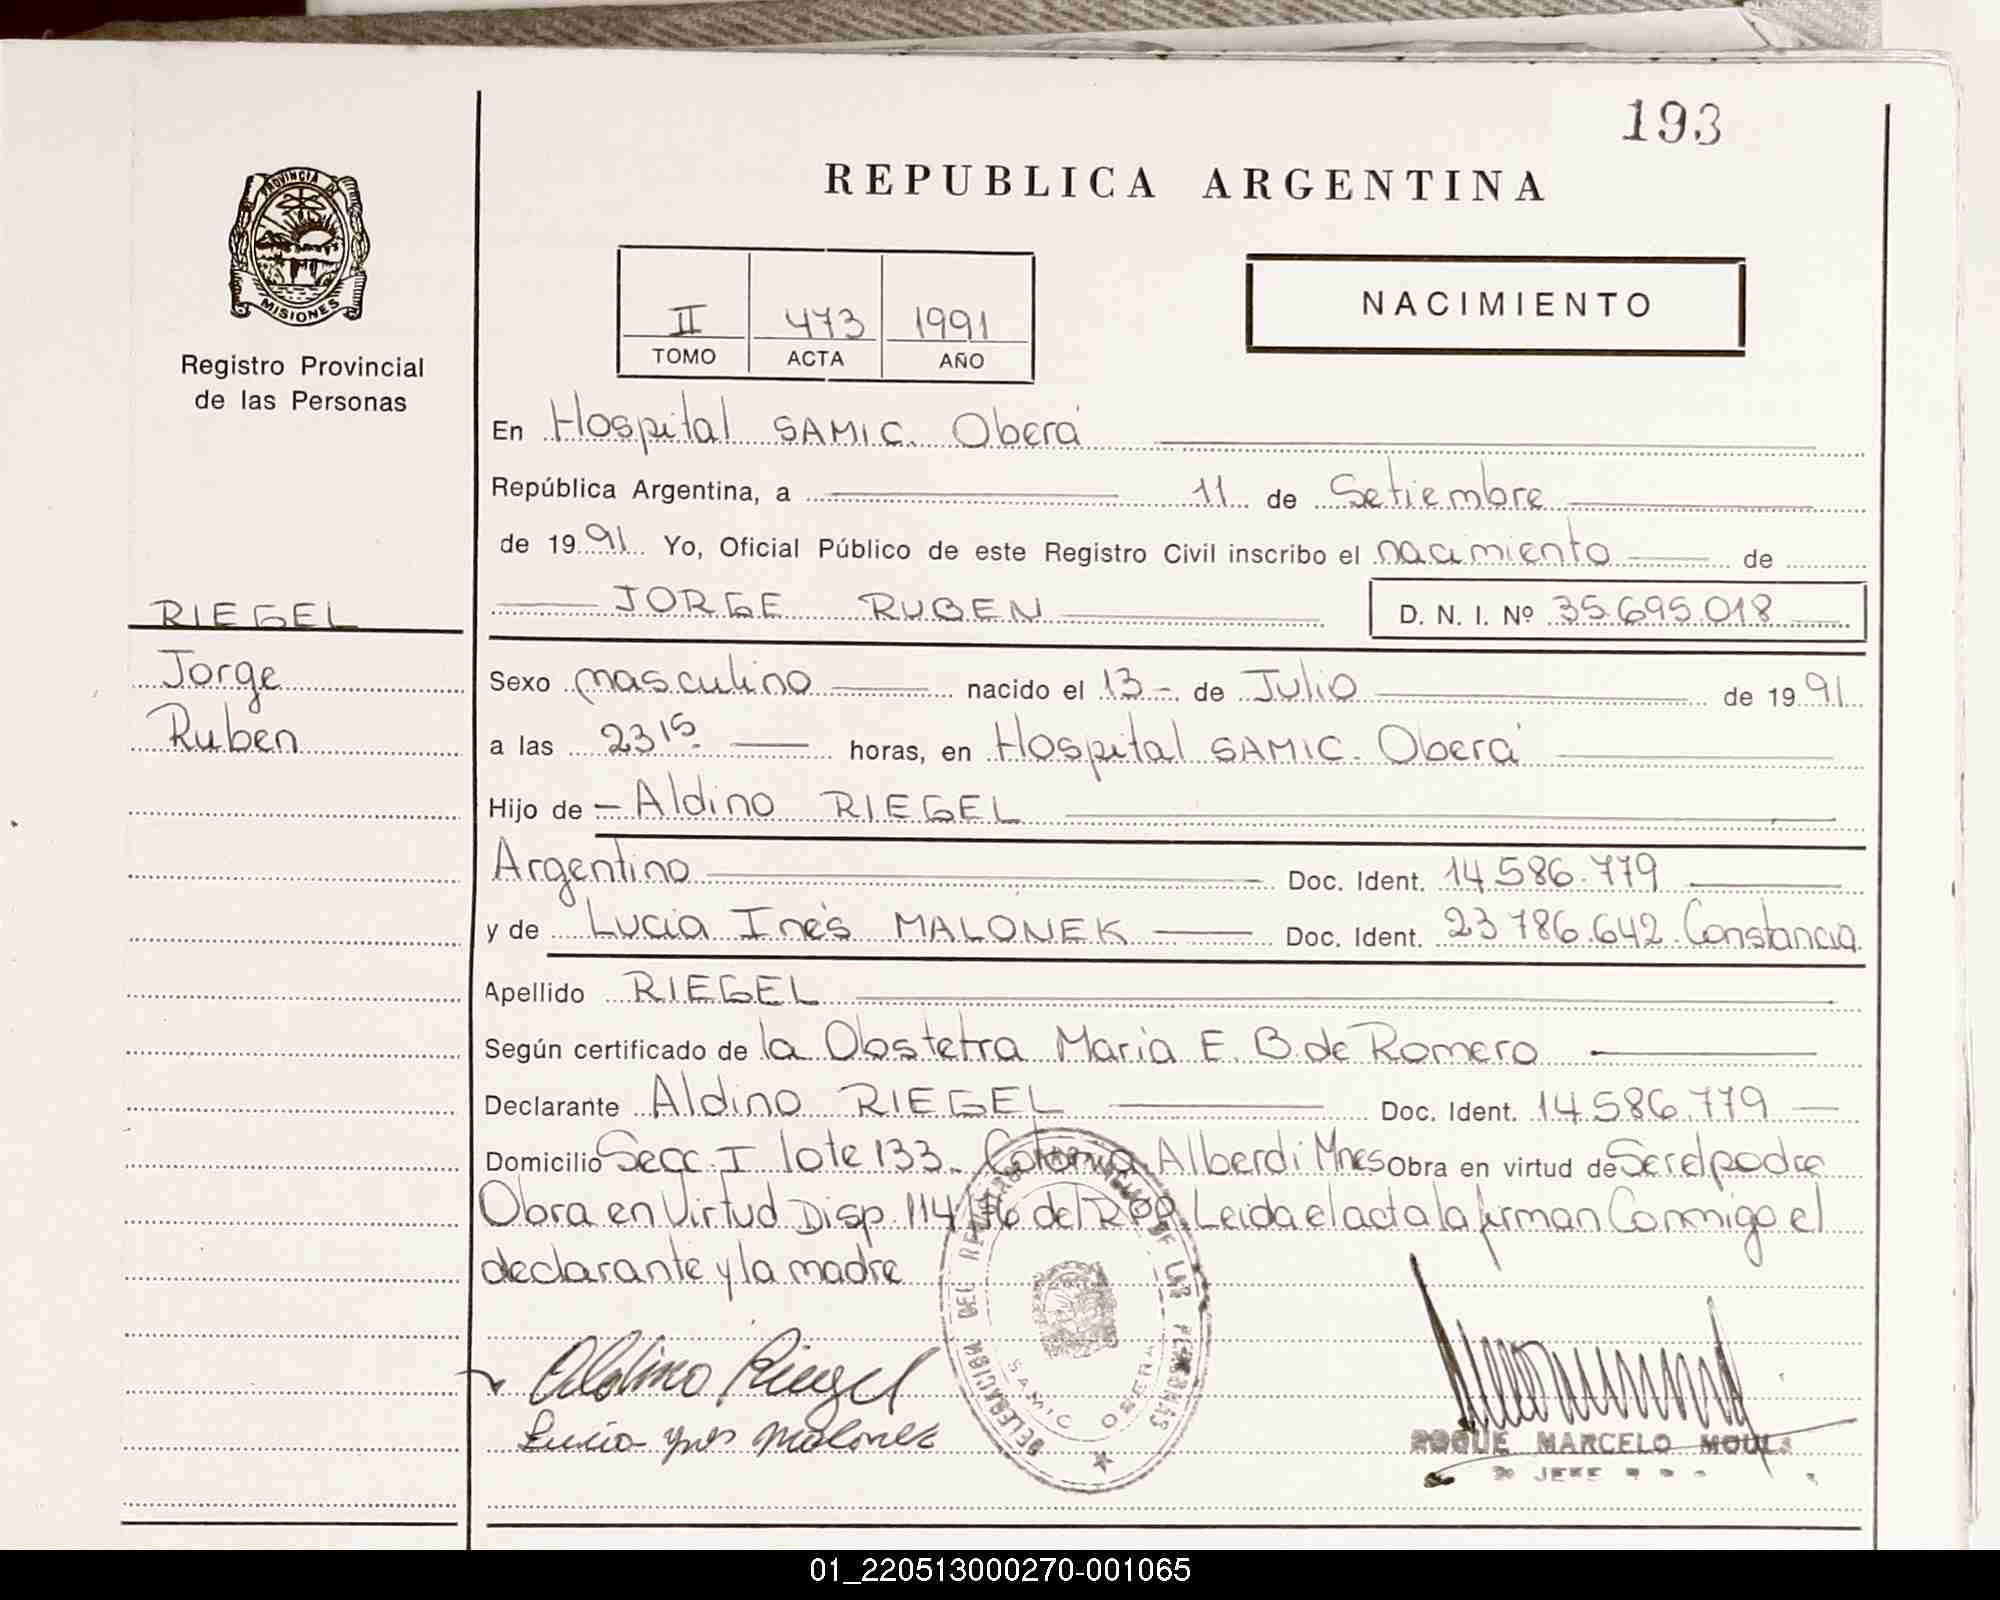 193
REPUBLICA ARGENTINA
PROVINCIA DE
MISIONES
Registro Provincial
de las Personas
II 473 1991
TOMO ACTA AÑO
NACIMIENTO
En Hospital SAMIC. Oberá
República Argentina, a 11 de Setiembre
de 1991 Yo, Oficial Público de este Registro Civil inscribo el nacimiento de
RIEGEL
Jorge
Ruben
JORGE RUBEN D. N. I. Nº 35.695.018
Sexo masculino nacido el 13 - de Julio de 1991
a las 23 15 horas, en Hospital SAMIC. Oberá
Hijo de - Aldino RIEGEL
Argentino Doc. Ident. 14.586.779
y de Lucia Inés MALONEK Doc. Ident. 23 786.642. Constancia
Apellido RIEGEL
Según certificado de la Obstetra Maria E. B. de Romero
Declarante Aldino RIEGEL Doc. Ident. 14.586.779
Domicilio Secc. I lote 133. Colonia Alberdi Mnes Obra en virtud de Ser el padre
Obra en Virtud Disp. 114/76 del RPP. Leida el acta la firman Conmigo el
declarante y la madre
Aldino Riegel
Lucia Ynes Malonek
DELEGACION DEL REGISTRO PROVINCIAL DE LAS PERSONAS
SAMIC OBERA
ROQUE MARCELO
JEFE
01_220513000270-001065